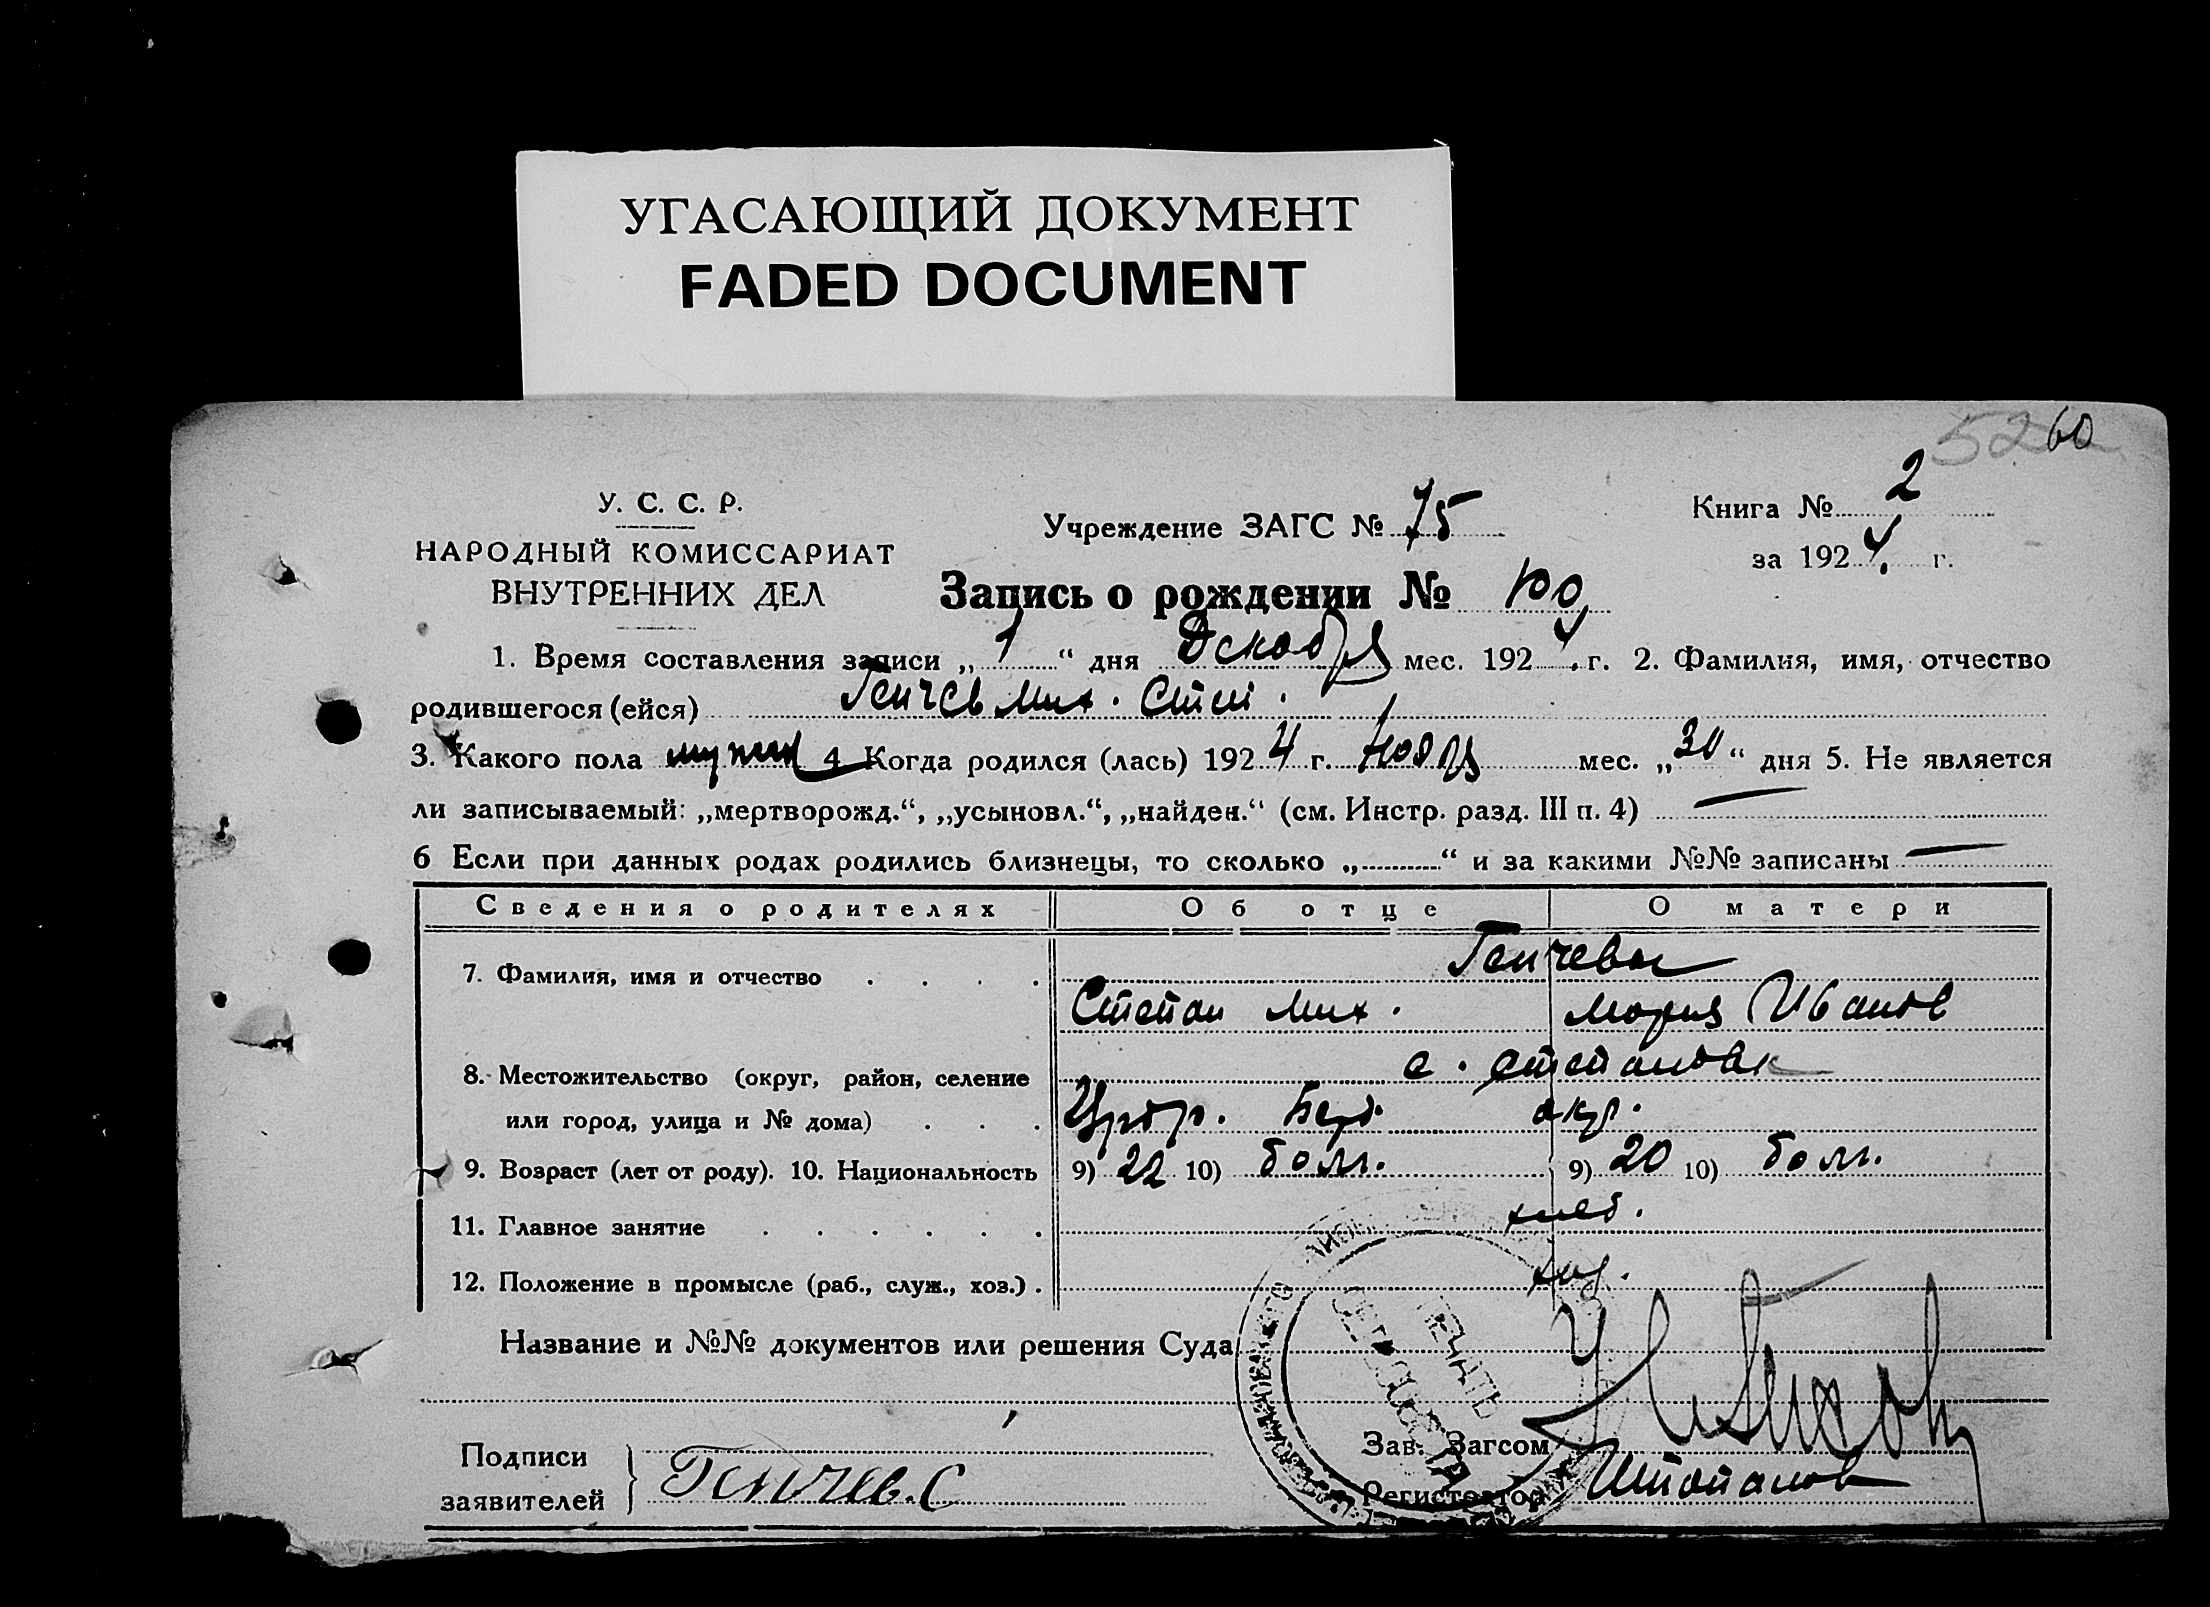 УГАСАЮЩИЙ ДОКУМЕНТ
FADED DOCUMENT
52 60
У. С. С. Р.
НАРОДНЫЙ КОМИССАРИАТ
ВНУТРЕННИХ ДЕЛ
Учреждение ЗАГС № 75
Книга № 2
за 1924 г.
Запись о рождении № 100
1. Время составления записи „1“ дня Декабря мес. 1924 г. 2. Фамилия, имя, отчество
родившегося (ейся) Генчев Мих. Степ.
3. Какого пола мужск 4 Когда родился (лась) 1924 г. Нояб мес. „30“ дня 5. Не является
ли записываемый: „мертворожд.“, „усыновл.“, „найден.“ (см. Инстр. разд. III п. 4) —
6 Если при данных родах родились близнецы, то сколько „...........“ и за какими №№ записаны —
Сведения о родителях Об отце О матери
Генчевы
7. Фамилия, имя и отчество . . . .
Степан Мих. Мария Иванов
с. Степановка
8. Местожительство (округ, район, селение
или город, улица и № дома) . . . Берд. окр.
9. Возраст (лет от роду). 10. Национальность 9) 22 10) болг. 9) 20 10) болг.
11. Главное занятие . . . . . . хлеб.
12. Положение в промысле (раб., служ., хоз.) . хоз.
Название и №№ документов или решения Суда
ПЕЧАТЬ
Подписи
заявителей } Генчев. С
Зав. Загсом
Регистратор